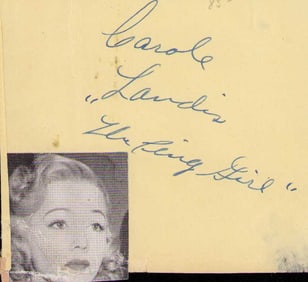 Carole
„Landis
The Ping Girl"